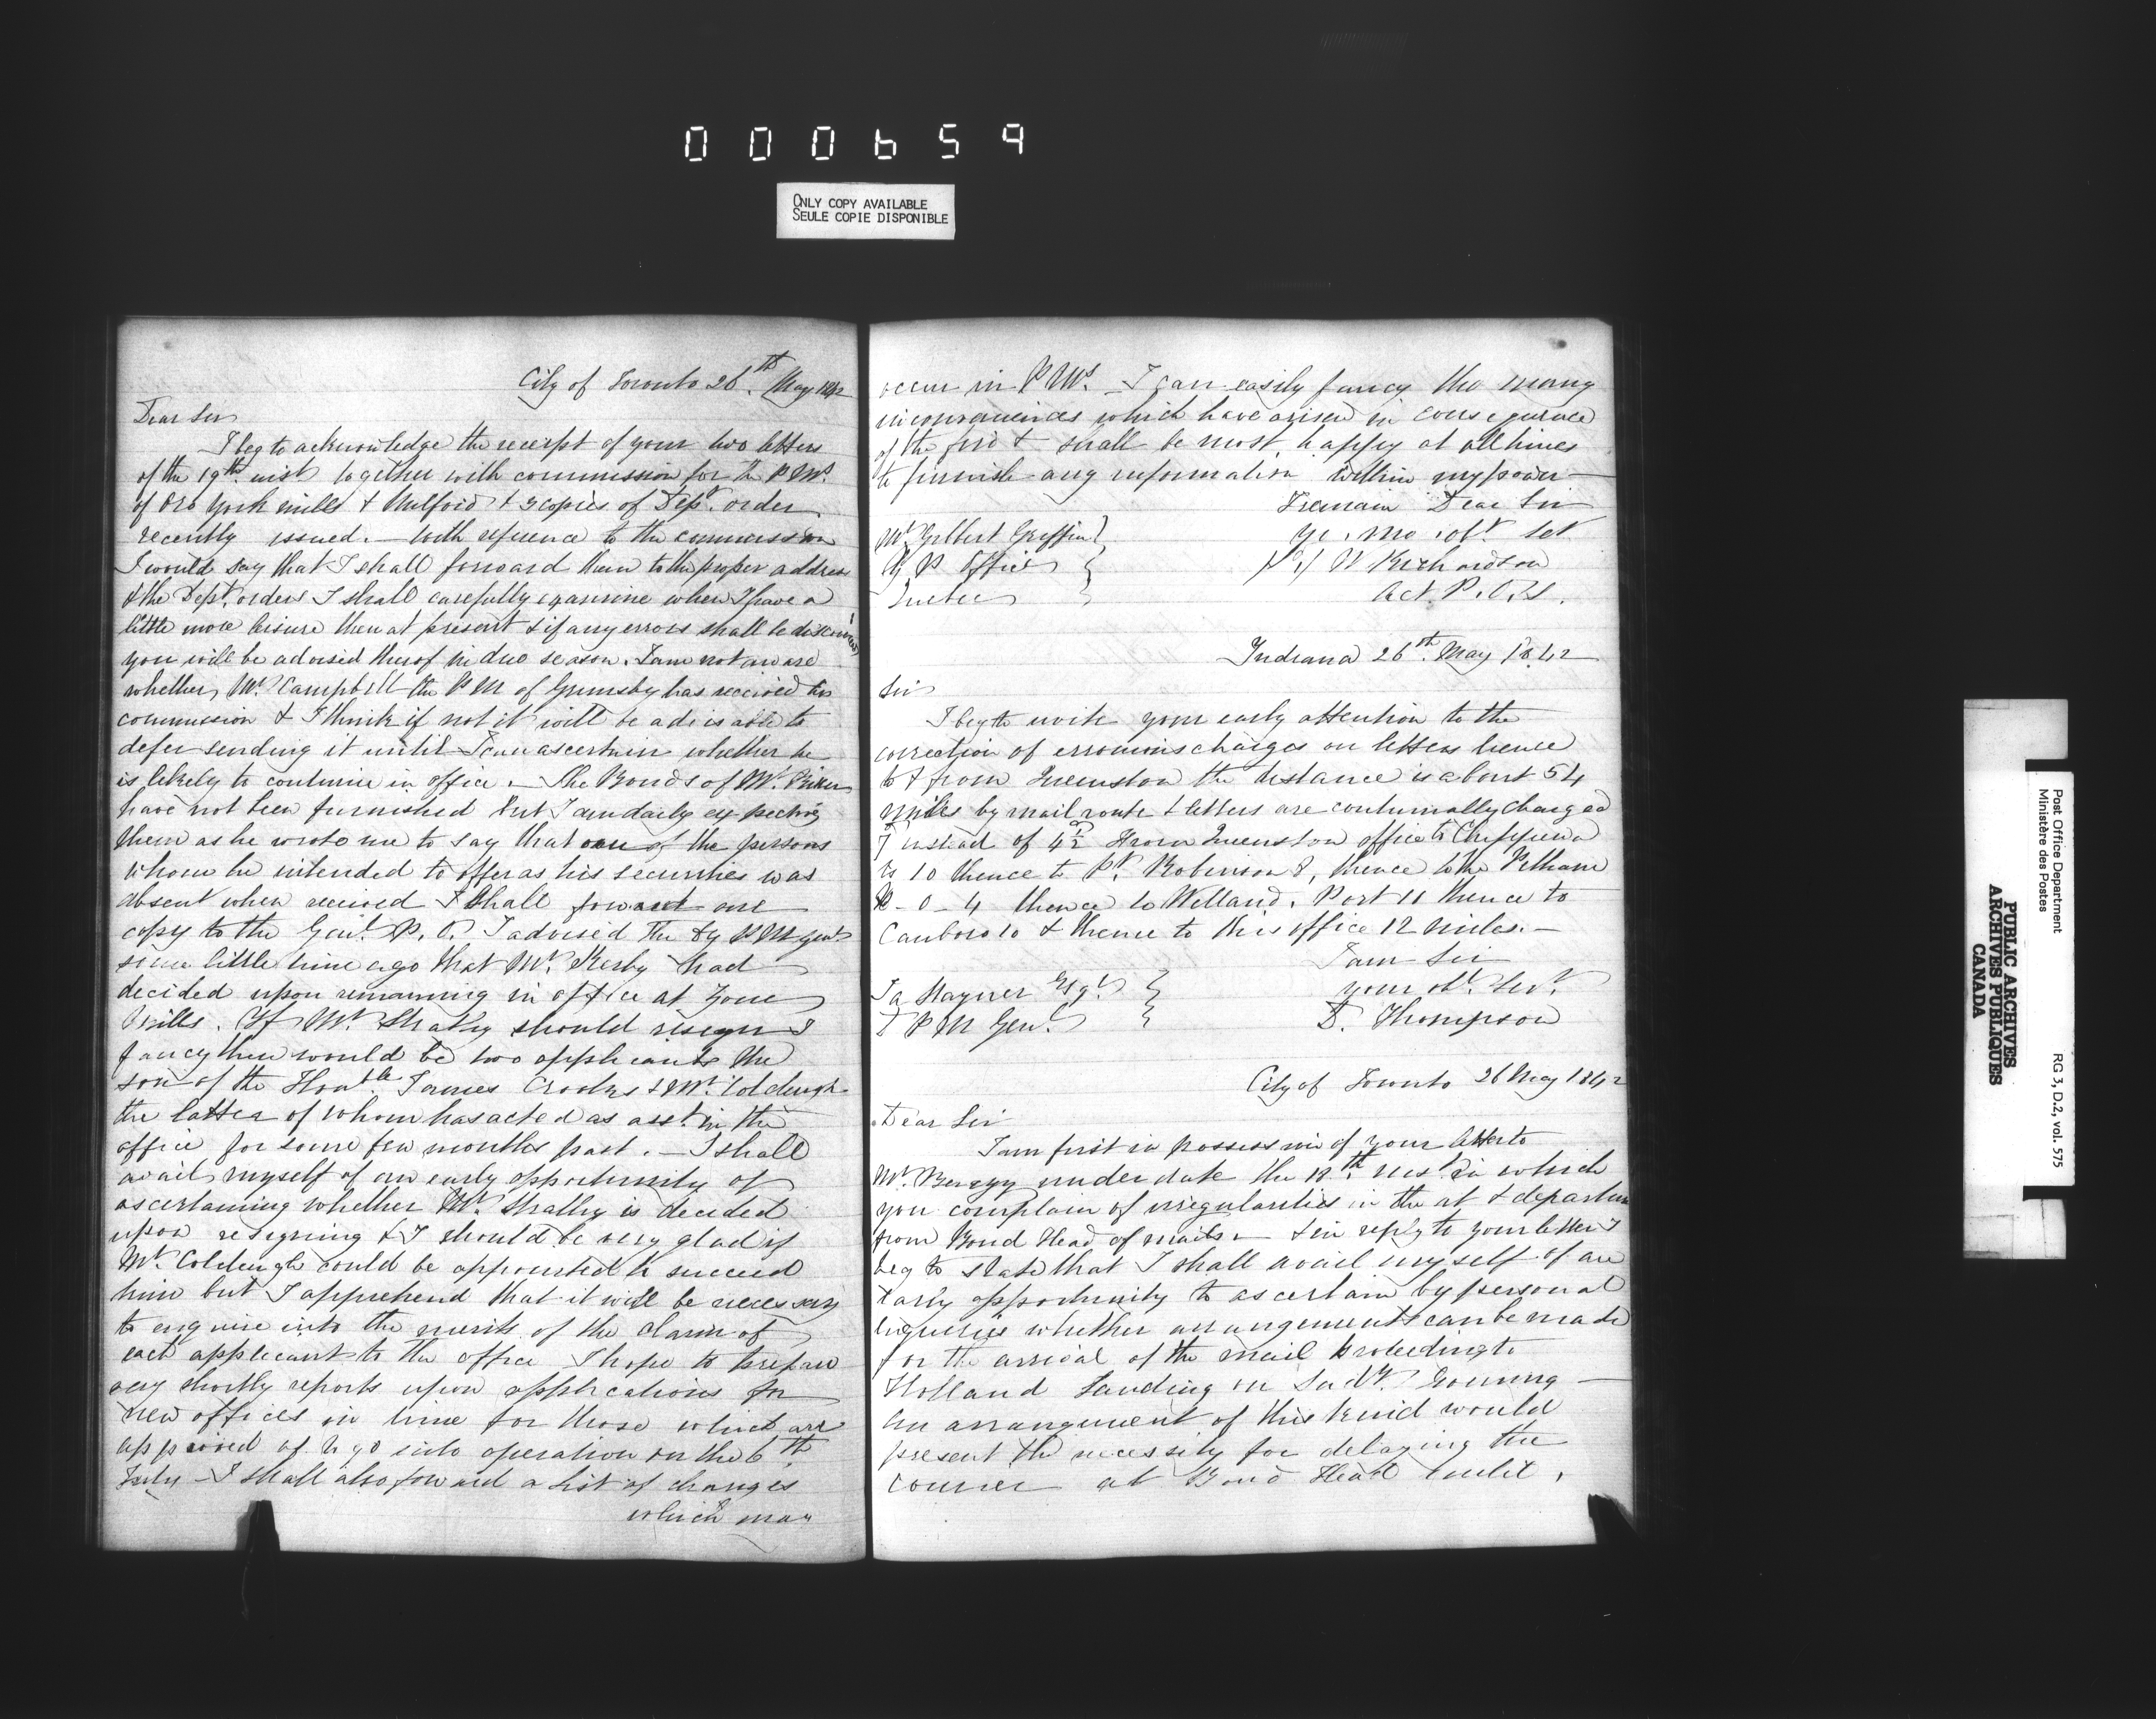 000659
ONLY COPY AVAILABLE
SEULE COPIE DISPONIBLE
City of Toronto 26th. May 1842
Dear Sir
I beg to acknowledge the receipt of your two letters
of the 19th. inst together with commission for the P Ms.
of Oro York mills & Mulford & 3 copies of Dept. order
recently issued. — With refrence to the commission
I would say that I shall forward them to the proper address
& the Dept. orders I shall carefully examine when I have a
little more leisure then at present & if any errors shall be discovered
you will be advised therof in due season. I am not aware
whether, Mr. Campbell the P M of Grimsby has received his
commission & I think if not it will be adviseable to
defer sending it until I can ascertain whether he
is likely to continue in office. — The Bonds of Mr.
have not been furnished but I am daily expecting
them as he wrote me to say that one of the persons
whom he intended to offer as his securities was
absent when received I shall forward one
copy to the Genl. P. O. I advised the Dy P M genl
some little time ago that Mr. Kerby had
decided upon remaining in office at Zone
Mills. If Mr. Strathy should resign I
fancy there would be two applicants the
son of the Honble James Crooks & Mr. Colclough
the latter of whom has acted as asst. in the
office for some few months past. — I shall
avail myself of an early opportunity of
ascertaining whether Mr. Strathy is decided
upon resigning & I should be very glad if
Mr. Colclough could be appointed to succeed
him but I apprehend that it will be necessary
to enquire into the merits of the claim of
each applicant to the office I hope to prepare
very shortly reports upon applications for
new offices in time for those which are
approved of to go into operation on the 6th
July — I shall also forward a list of changes
which may
occur in P Ms. — I can easily fancy the many
inconveniences which have arisen in consequence
of the fire & shall be most happy at all times
to furnish any information within my power —
I remain Dear Sir
Mr. Gilbert Griffin
yr. mo. obt. Set
G P Office
W Richardson
Quebec
Act. P. O. S.
Indiana 26th. May 1842
Sir
I beg to invite your early attention to the
correction of erronious charges on letters hence
to & from Queenston the distance is about 54
miles by mail route & letters are continually charged
7 instead of 4½ From Queenston office to Chippewa
is 10 thence to Pt. Robinson 8, thence to the Pelham
P - O - 4 thence to Welland. Port 11 thence to
Canboro 10 & thence to this office 12 miles. —
I am Sir
Ja Stayner Esqr.
your obt. Servt.
D P M Genl.
D. Thompson
City of Toronto 26 May 1842
Dear Sir
I am first in possession of your letter to
Mr. Berczy under date the 18th. inst. in which
you complain of irregularities in the at & departure
from Bond Head of mails — & in reply to your letter I
beg to state that I shall avail myself of an
early opportunity to ascertain by personal
inqueries whether arrangements can be made
for the arrival of the mail proceeding to
Holland Landing on Sudy. Evening —
An arrangement of this kind would
present the necessity for delaying the
courier at Bond Head until,
Post Office Department
Ministère des Postes
RG 3, D.2, vol. 575
PUBLIC ARCHIVES
ARCHIVES PUBLIQUES
CANADA